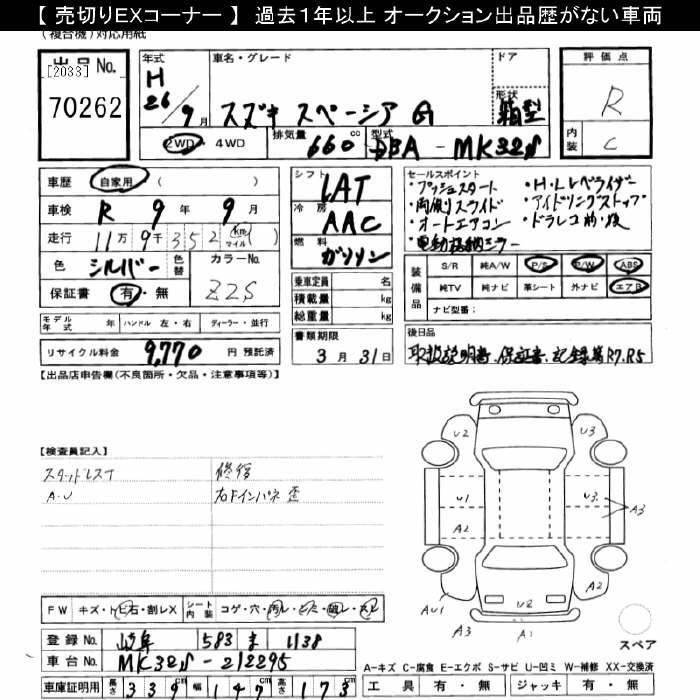 【 売切りEXコーナー 】 過去1年以上 オークション出品歴がない車両
(複合機)対応用紙
出品No.
[2033]
70262
年式
H
26/9月
車名・グレード
スズキ スペーシア G
ドア
形状
箱型
2WD・4WD
排気量
660 cc
型式
DBA - MK32S
評価点
R
内装
C
車歴 自家用 ( )
車検 R 9 年 9 月
走行 11万 9千 352 km マイル ( )
色 シルバー
色替
カラーNo.
Z2S
保証書 有・無
シフト
IAT
冷房
AAC
燃料
ガソリン
乗車定員 名
積載量 kg
総重量 kg
セールスポイント
・プッシュスタート
・両側スライド
・オートエアコン
・電動格納ミラー
・H・Lレベライザー
・アイドリングストップ
・ドラレコ前・後
装備品
S/R 純A/W P/S P/W ABS
純TV 純ナビ 革シート 外ナビ エアB
ナビ型番:
モデル年式 年 ハンドル 左・右 ディーラー・並行
リサイクル料金 9,770 円 預託済
書類期限
3月31日
後日品
取扱説明書、保証書、記録簿R7,R5
【出品店申告欄(不良箇所・欠品・注意事項等)】
【検査員記入】
スタッドレスT
A・U
修復
右Fインパネ歪
U2
U3
U1
U3
A3
A2
A2
AU1
A3
U2
A1
スペア
FW キズ・トビ石・割レX
シート内装 コゲ・穴・汚レ・シミ・破レ・スレ
登録No. 岐阜 583 ま 1138
車台No. MK32S-212295
車庫証明用 高さ 339cm 幅 147cm 高さ 173cm
A―キズ C―腐食 E―エクボ S―サビ U―凹ミ W―補修 XX―交換済
工具 有・無 ジャッキ 有・無